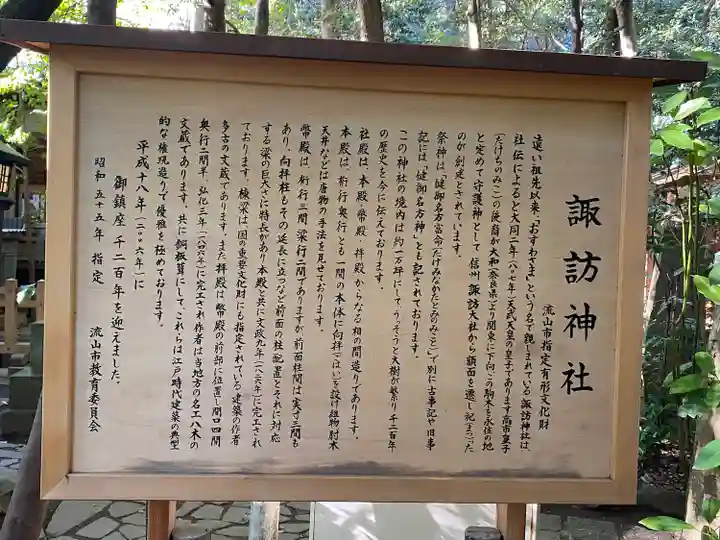 諏訪神社
流山市指定有形文化財
遠い祖先以来、「おすわさま」という名で親しまれている諏訪神社は、
社伝によると大同二年(八〇七年)天武天皇の皇子であります高市皇子
(たけちのみこ)の後裔が大和(奈良県)より関東に下向、この駒木を永住の地
と定めて守護神として信州諏訪大社から額面を遷し祀(まつ)った
のが創建とされています。
祭神は、「健御名方富命(たけみなかたとみのみこと)」で別に古事記や旧事
記には、「健御名方神」とも記されております。
この神社の境内は約一万坪にして、うっそうと大樹が繁り千二百年
の歴史を今に伝えております。
社殿は、本殿・幣殿・拝殿からなる相の間造りであります。
本殿は、桁行、奥行とも一間の本体に向拝(ごはい)を設け組物、肘木
天井などは唐物の手法を見せております。
幣殿は、桁行三間、梁行二間でありますが、前面柱間は実寸三間も
あり、向拝柱もその延長に立つなど前面の柱配置とそれに対応
する梁の巨大さに特長があり本殿と共に文政九年(一八二六年)に完工され
ております。棟梁は、国の重要文化財にも指定されている建築の作者
多古の文蔵であります。また拝殿は、幣殿の前部に位置し間口四間
奥行二間半、弘化三年(一八四六年)に完工され作者は当地方の名工八木の
文蔵であります。共に銅板葺にして、これらは江戸時代建築の典型
的な権現造りで優雅を極めております。
平成十八年(二〇〇六年)に
御鎮座千二百年を迎えました。
昭和五十五年指定 流山市教育委員会